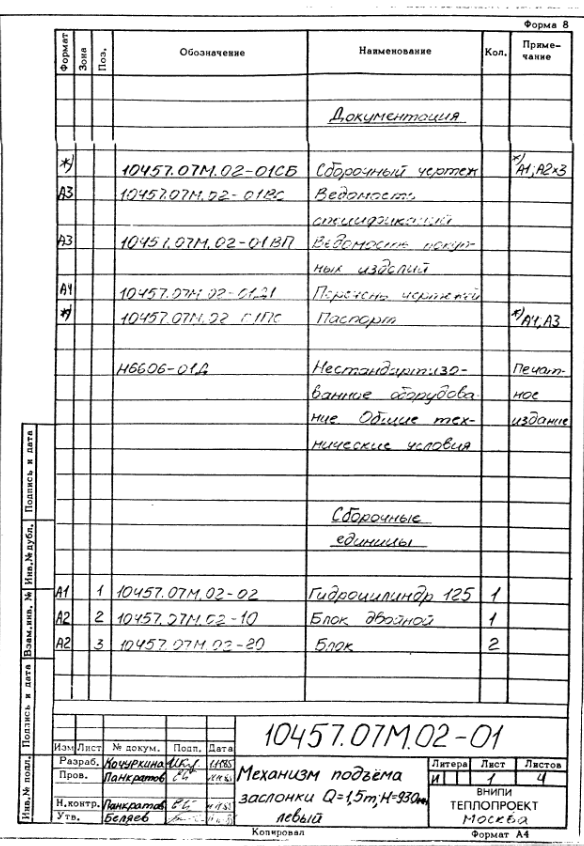 Форма 8
Формат Зона Поз. Обозначение Наименование Кол. Приме-
чание
Документация
*) 10457.07М.02-01СБ Сборочный чертеж *) А1;А2×3
А3 10457.07М.02-01ВС Ведомость
спецификаций
А3 10457.07М.02-01ВП Ведомость покуп-
ных изделий
А4 10457.07М.02-01Д1 Перечень чертежей
*) 10457.07М.02-01ПС Паспорт *) А4,А3
Н6606-01Д Нестандартизо- Печат-
ванное оборудова- ное
ние Общие тех- издание
нические условия
Сборочные
единицы
А1 1 10457.07М.02-02 Гидроцилиндр 125 1
А2 2 10457.07М.02-10 Блок двойной 1
А2 3 10457.07М.02-20 Блок 2
Инв.№ подл. Подпись и дата Взам.инв. № Инв.№дубл. Подпись и дата
10457.07М.02-01
Изм Лист № докум. Подп. Дата
Разраб. Кочуркина
Пров. Панкратов
Н.контр. Панкратов
Утв. Беляев
Механизм подъёма
заслонки Q=1,5т;Н=930мм,
левый
Литера Лист Листов
И 1 4
ВНИПИ
ТЕПЛОПРОЕКТ
Москва
Копировал Формат А4